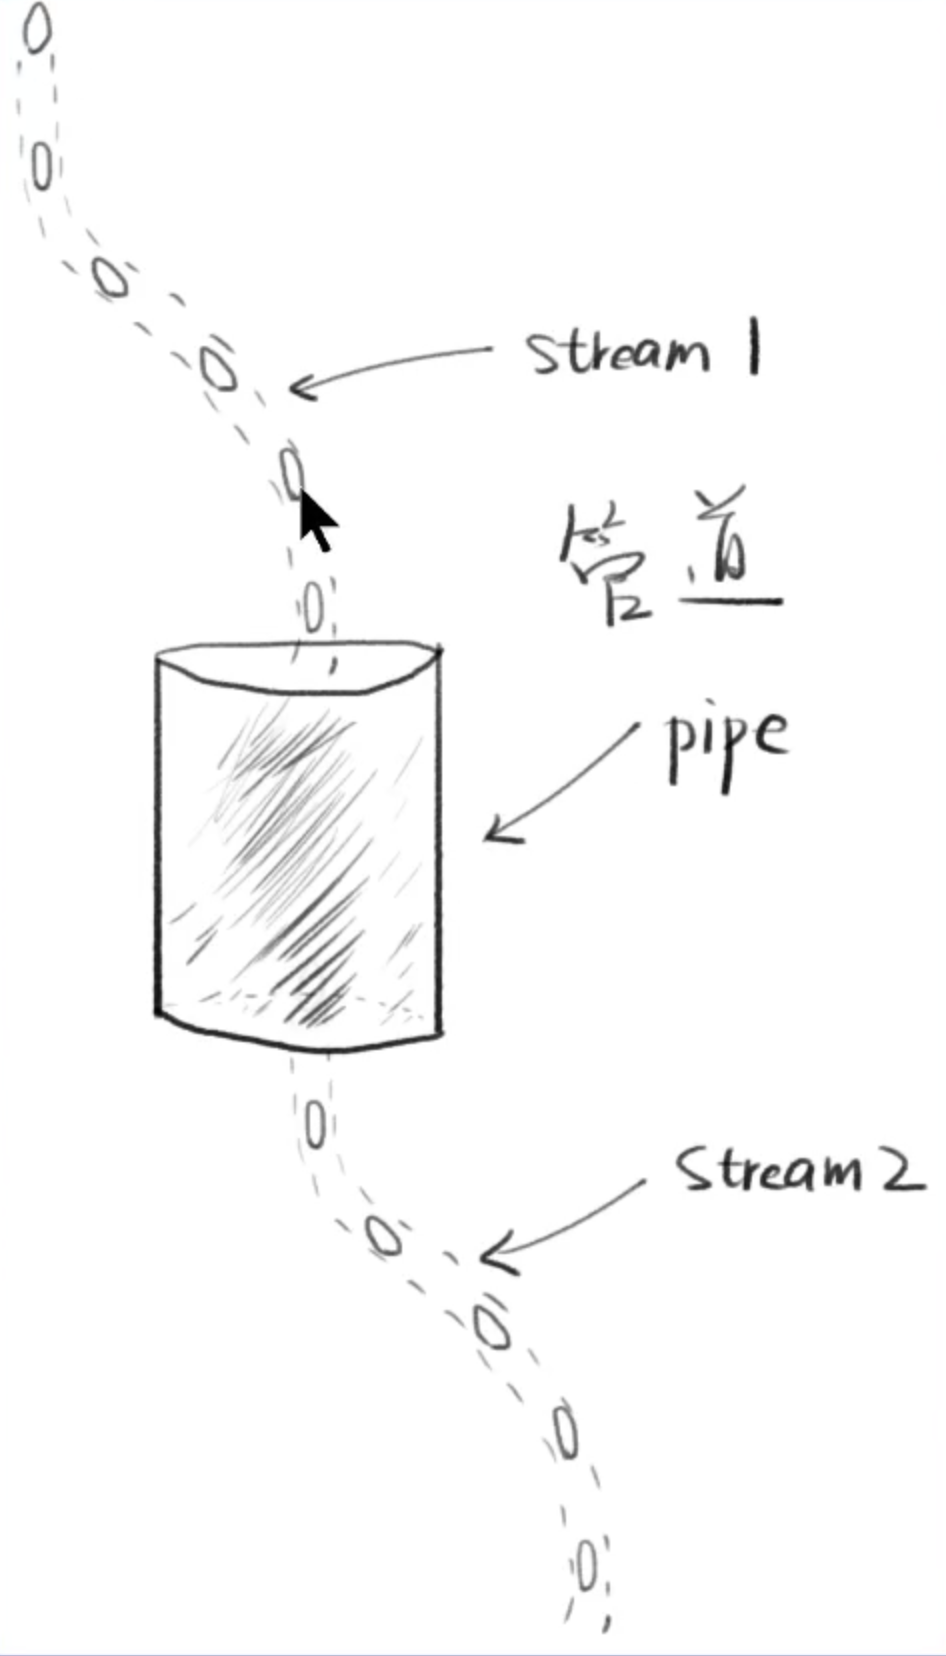 stream 1
管道
pipe
Stream 2